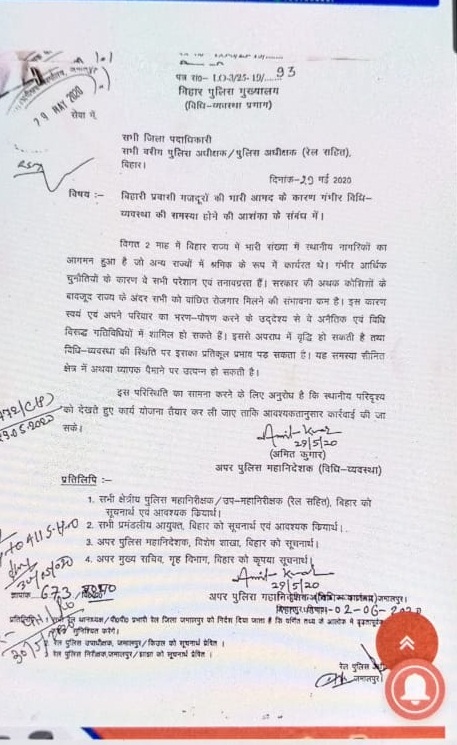 पत्र सं०- L.O-3/25-19/......93
बिहार पुलिस मुख्यालय
(विधि-व्यवस्था प्रभाग)
29 MAY 2020
सेवा में,
सभी जिला पदाधिकारी
सभी वरीय पुलिस अधीक्षक/पुलिस अधीक्षक (रेल सहित),
बिहार।
दिनांक-29 मई 2020
विषय :- बिहारी प्रवासी मजदूरों की भारी आमद के कारण गंभीर विधि-
व्यवस्था की समस्या होने की आशंका के संबंध में।
विगत 2 माह में बिहार राज्य में भारी संख्या में स्थानीय नागरिकों का
आगमन हुआ है जो अन्य राज्यों में श्रमिक के रूप में कार्यरत थे। गंभीर आर्थिक
चुनौतियों के कारण वे सभी परेशान एवं तनावग्रस्त हैं। सरकार की अथक कोशिशों के
बावजूद राज्य के अंदर सभी को वांछित रोजगार मिलने की संभावना कम है। इस कारण
स्वयं एवं अपने परिवार का भरण-पोषण करने के उद्देश्य से वे अनैतिक एवं विधि
विरूद्ध गतिविधियों में शामिल हो सकते हैं। इससे अपराध में वृद्धि हो सकती है तथा
विधि-व्यवस्था की स्थिति पर इसका प्रतिकूल प्रभाव पड़ सकता है। यह समस्या सीमित
क्षेत्र में अथवा व्यापक पैमाने पर उत्पन्न हो सकती है।
इस परिस्थिति का सामना करने के लिए अनुरोध है कि स्थानीय परिदृश्य
को देखते हुए कार्य योजना तैयार कर ली जाए ताकि आवश्यकतानुसार कार्रवाई की जा
सके।
Amit Kumar
29/5/20
(अमित कुमार)
अपर पुलिस महानिदेशक (विधि-व्यवस्था)
प्रतिलिपि :-
1. सभी क्षेत्रीय पुलिस महानिरीक्षक/उप-महानिरीक्षक (रेल सहित), बिहार को
सूचनार्थ एवं आवश्यक क्रियार्थ।
2. सभी प्रमंडलीय आयुक्त, बिहार को सूचनार्थ एवं आवश्यक क्रियार्थ।
3. अपर पुलिस महानिदेशक, विशेष शाखा, बिहार को सूचनार्थ।
4. अपर मुख्य सचिव, गृह विभाग, बिहार को कृपया सूचनार्थ।
Amit Kumar
29/5/20
अपर पुलिस महानिदेशक
ज्ञापांक 673
02-06-
रेल थानाध्यक्ष/पी०पी० प्रभारी रेल जिला जमालपुर को निर्देश दिया जाता है कि वर्णित तथ्य के आलोक में
सुनिश्चित करेंगे।
रेल पुलिस उपाधीक्षक, जमालपुर/किउल को सूचनार्थ प्रेषित।
रेल पुलिस निरीक्षक, जमालपुर/झाझा को सूचनार्थ प्रेषित।
रेल पुलिस
जमालपुर।